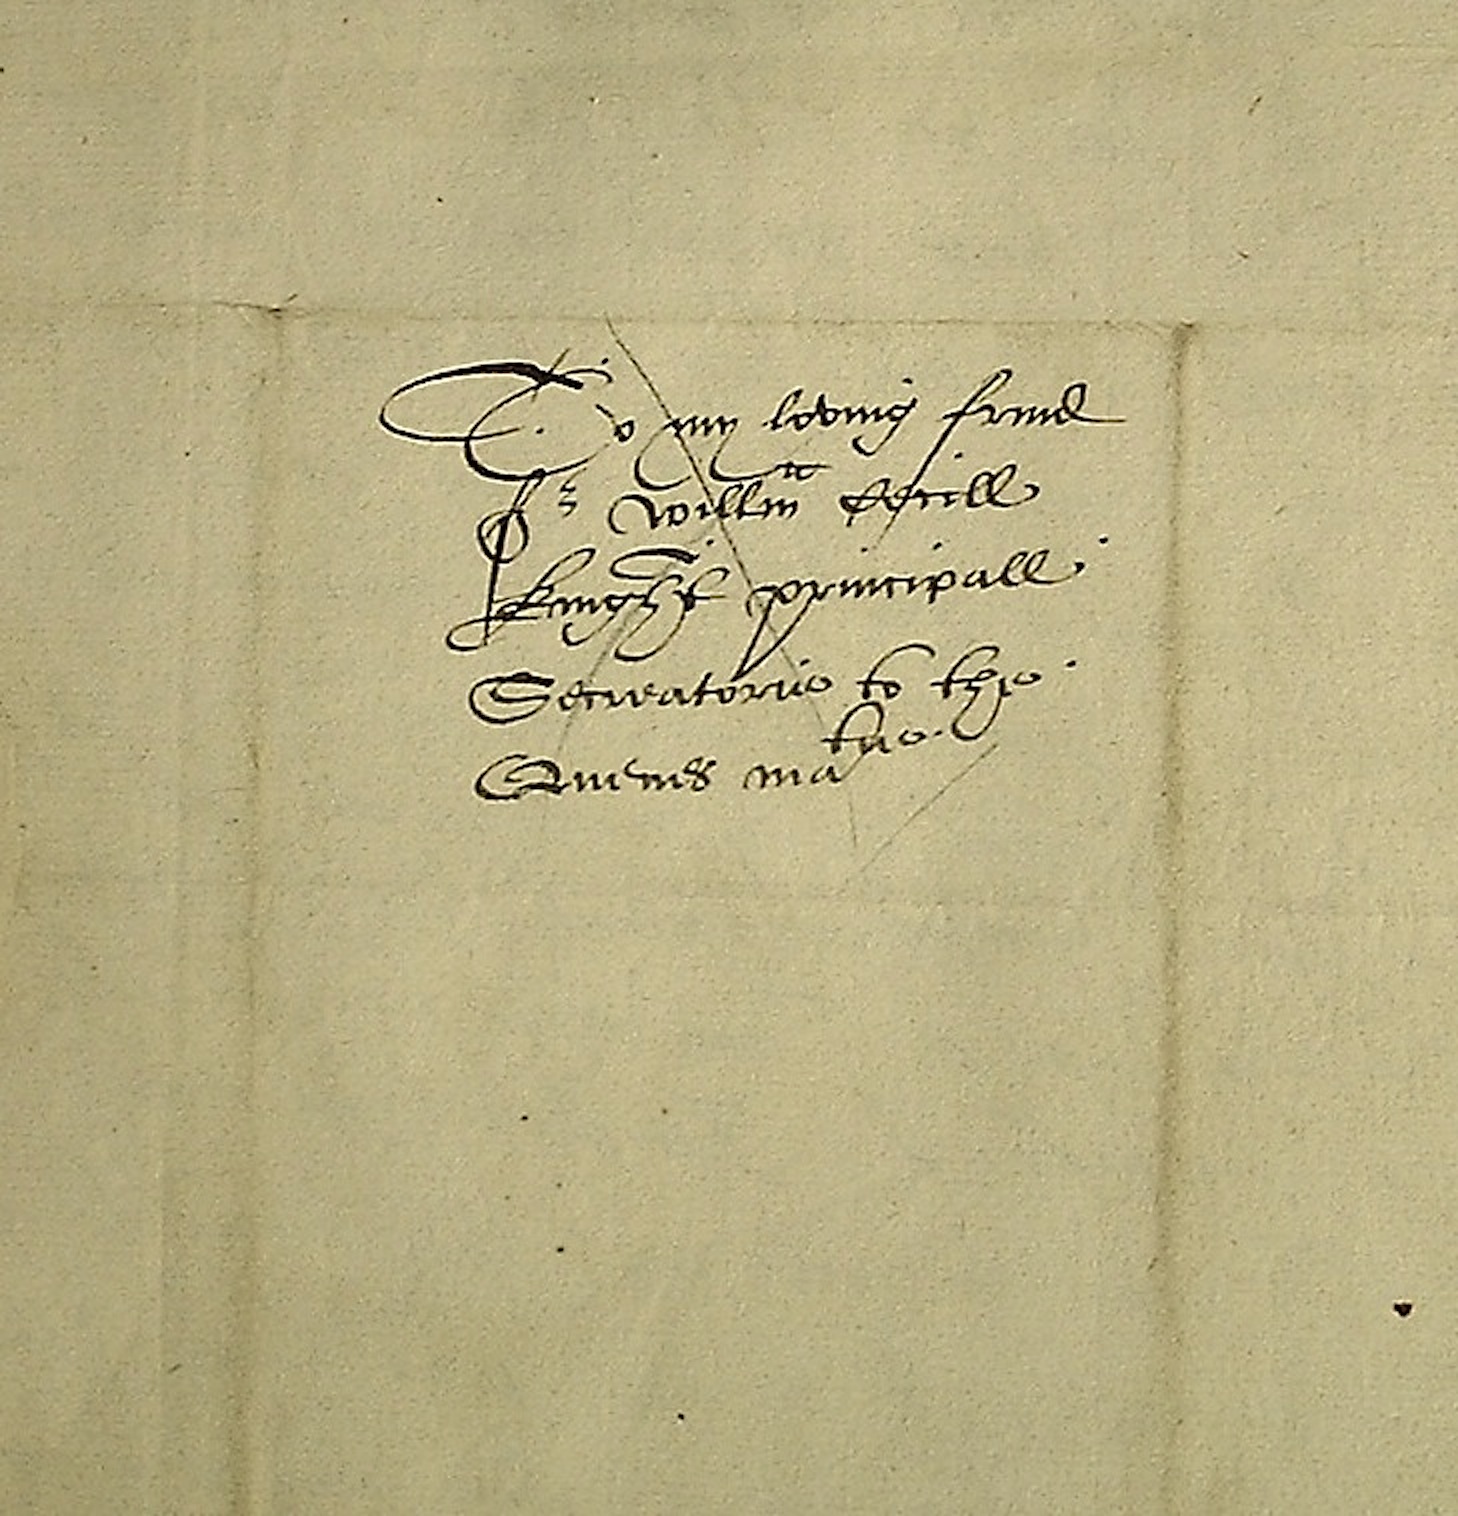 To my loving frend
Sr Willm Cecill
knight principall
Secreatorie to the
Quenes matie.